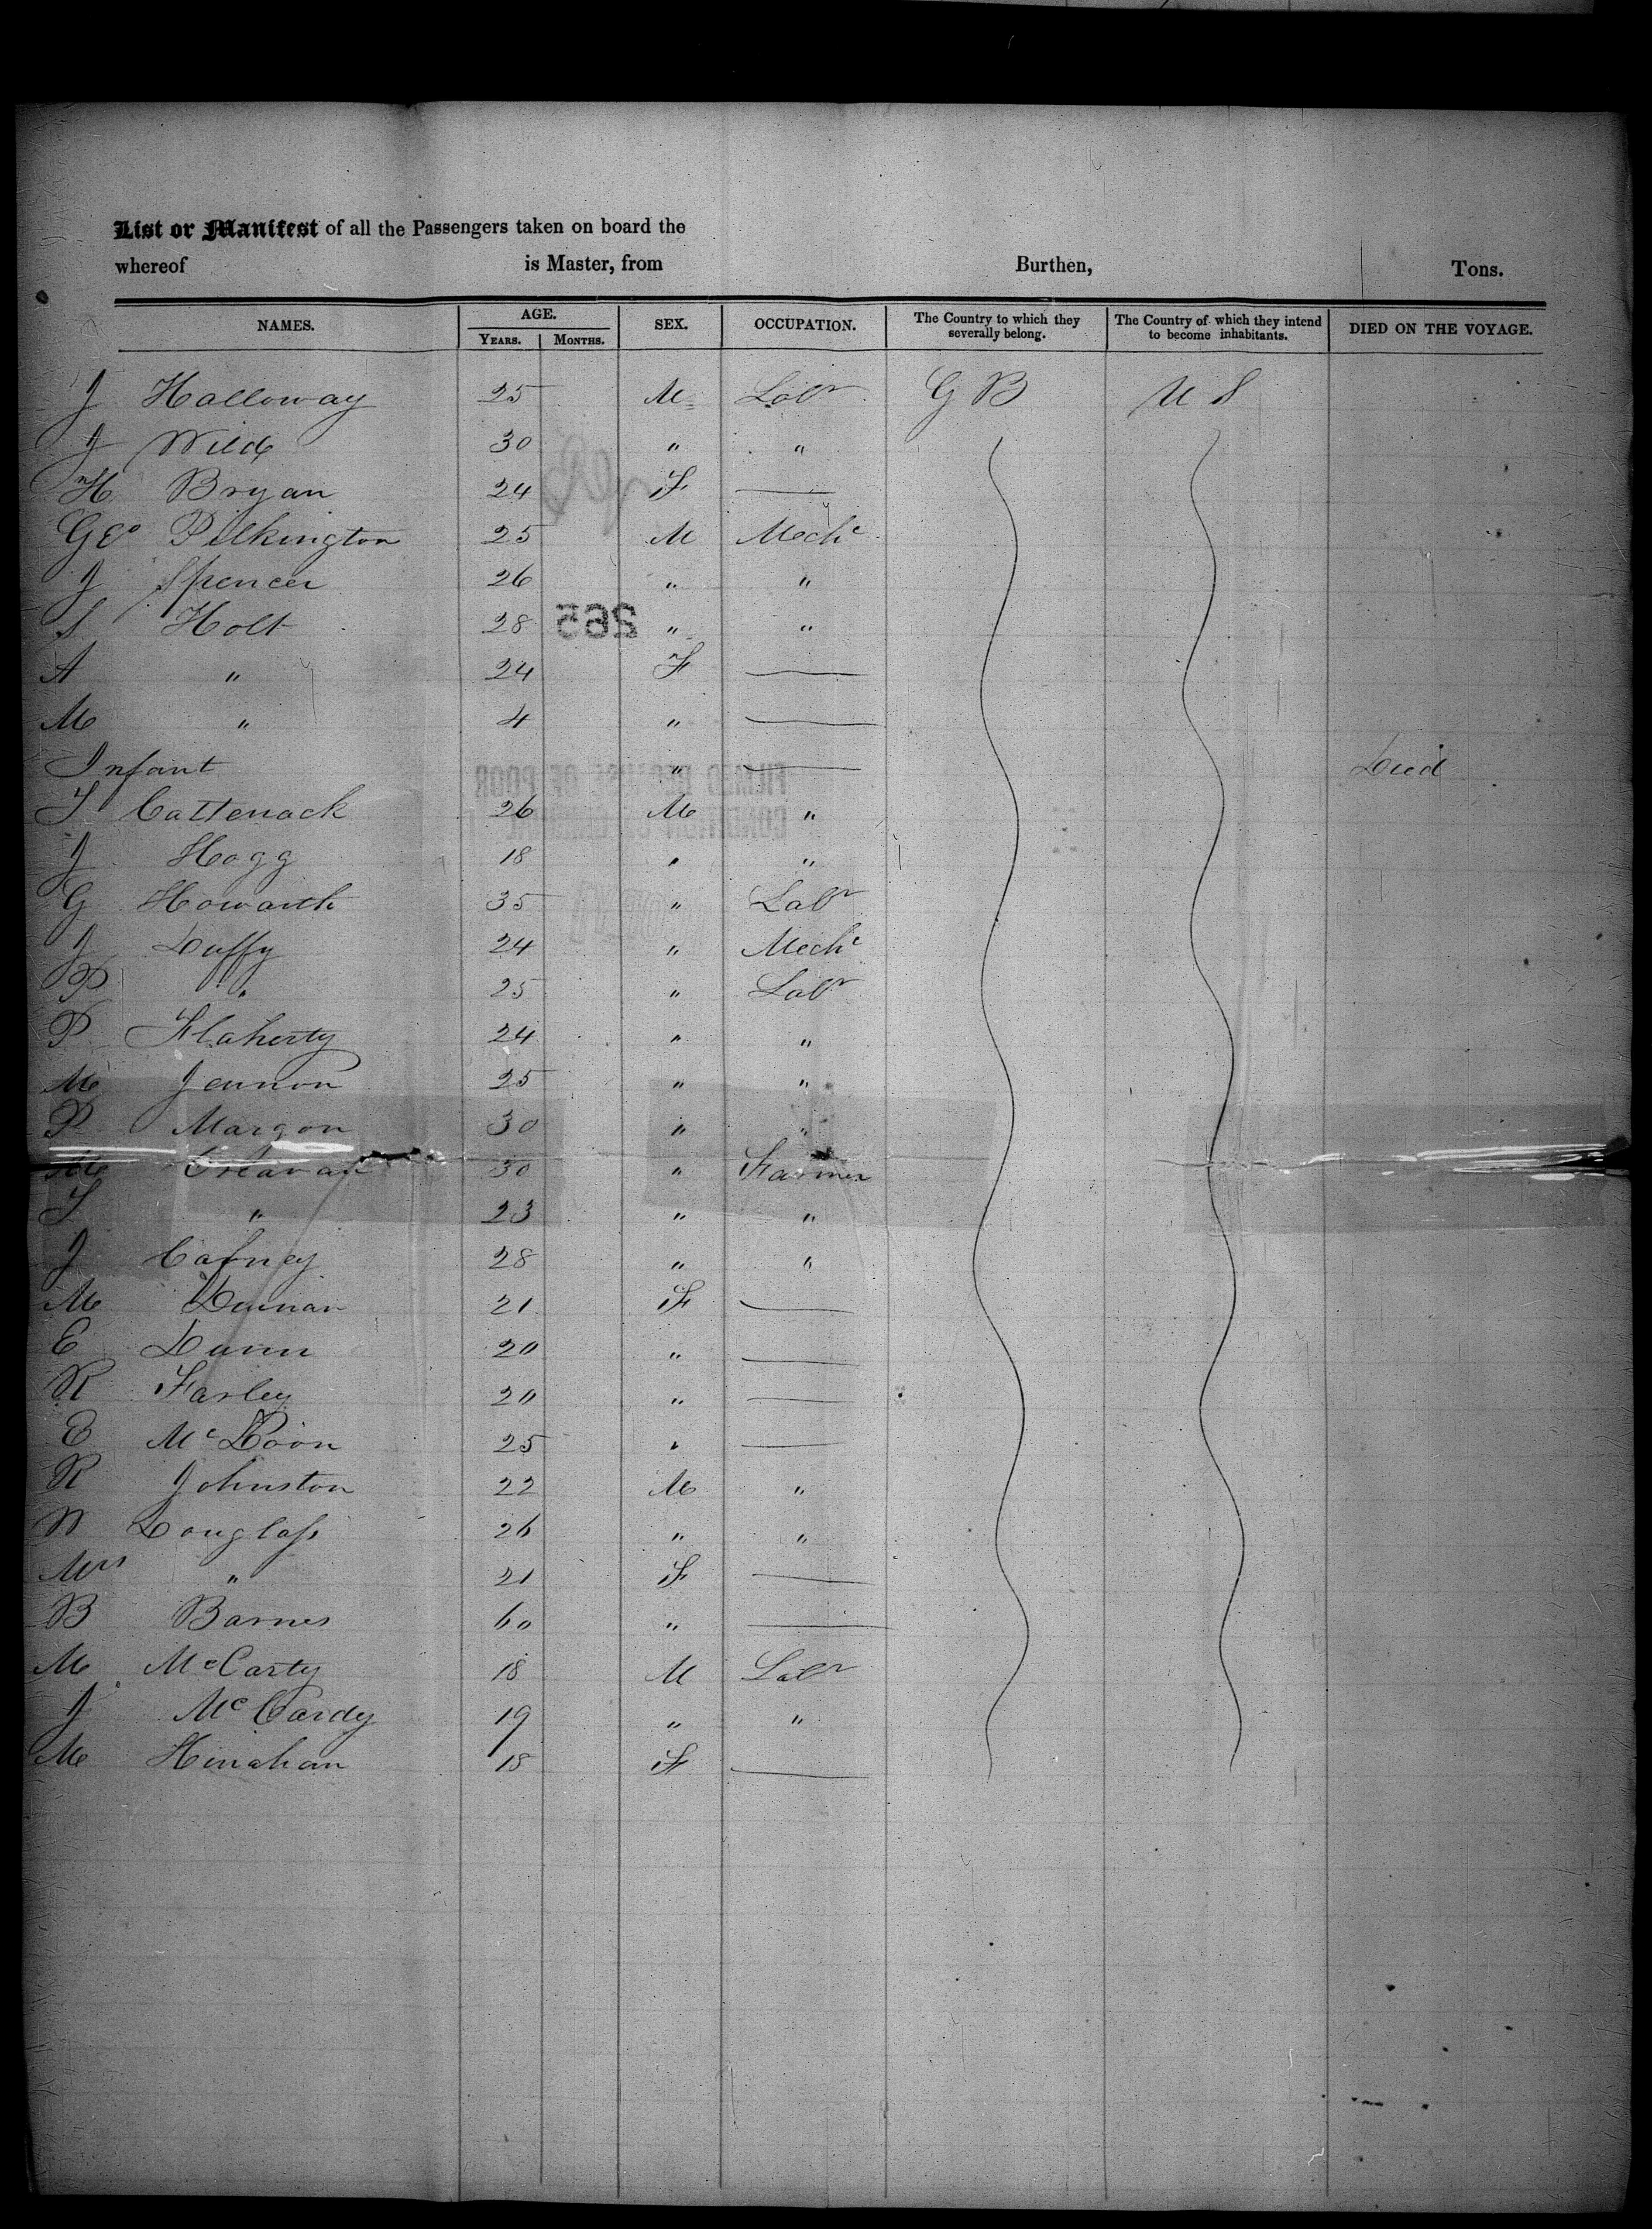 List or Manifest of all the Passengers taken on board the
whereof is Master, from Burthen, Tons.
NAMES. AGE. SEX. OCCUPATION. The Country to which they severally belong. The Country of which they intend to become inhabitants. DIED ON THE VOYAGE.
YEARS. MONTHS.
J Halloway 25 M Labr G B U S
J Wild 30 " "
H Bryan 24 F
Geo Pilkington 25 M Mechc
J Spencer 26 " "
S Holt 28 " "
265
A " 24 F
M " 4 "
Infant " Died
T Cattenack 26 M "
J Hogg 18 " "
G Howarth 35 " Labr
J Duffy 24 " Mechc
P " 25 " Labr
P Flaherty 24 " "
M Jennon 25 " "
P Margon 30 " "
M 30 " Farmer
" 23 " "
J Cafney 28 " "
M 21 F
E Dunn 20 "
R Farley 20 "
E 25 "
R Johnston 22 M "
W Douglass 26 " "
Mrs " 21 F
B Barnes 60 "
M McCarty 18 M Labr
J McCardy 19 " "
M Hinahan 18 F
FILMED BECAUSE OF POOR
CONDITION OF